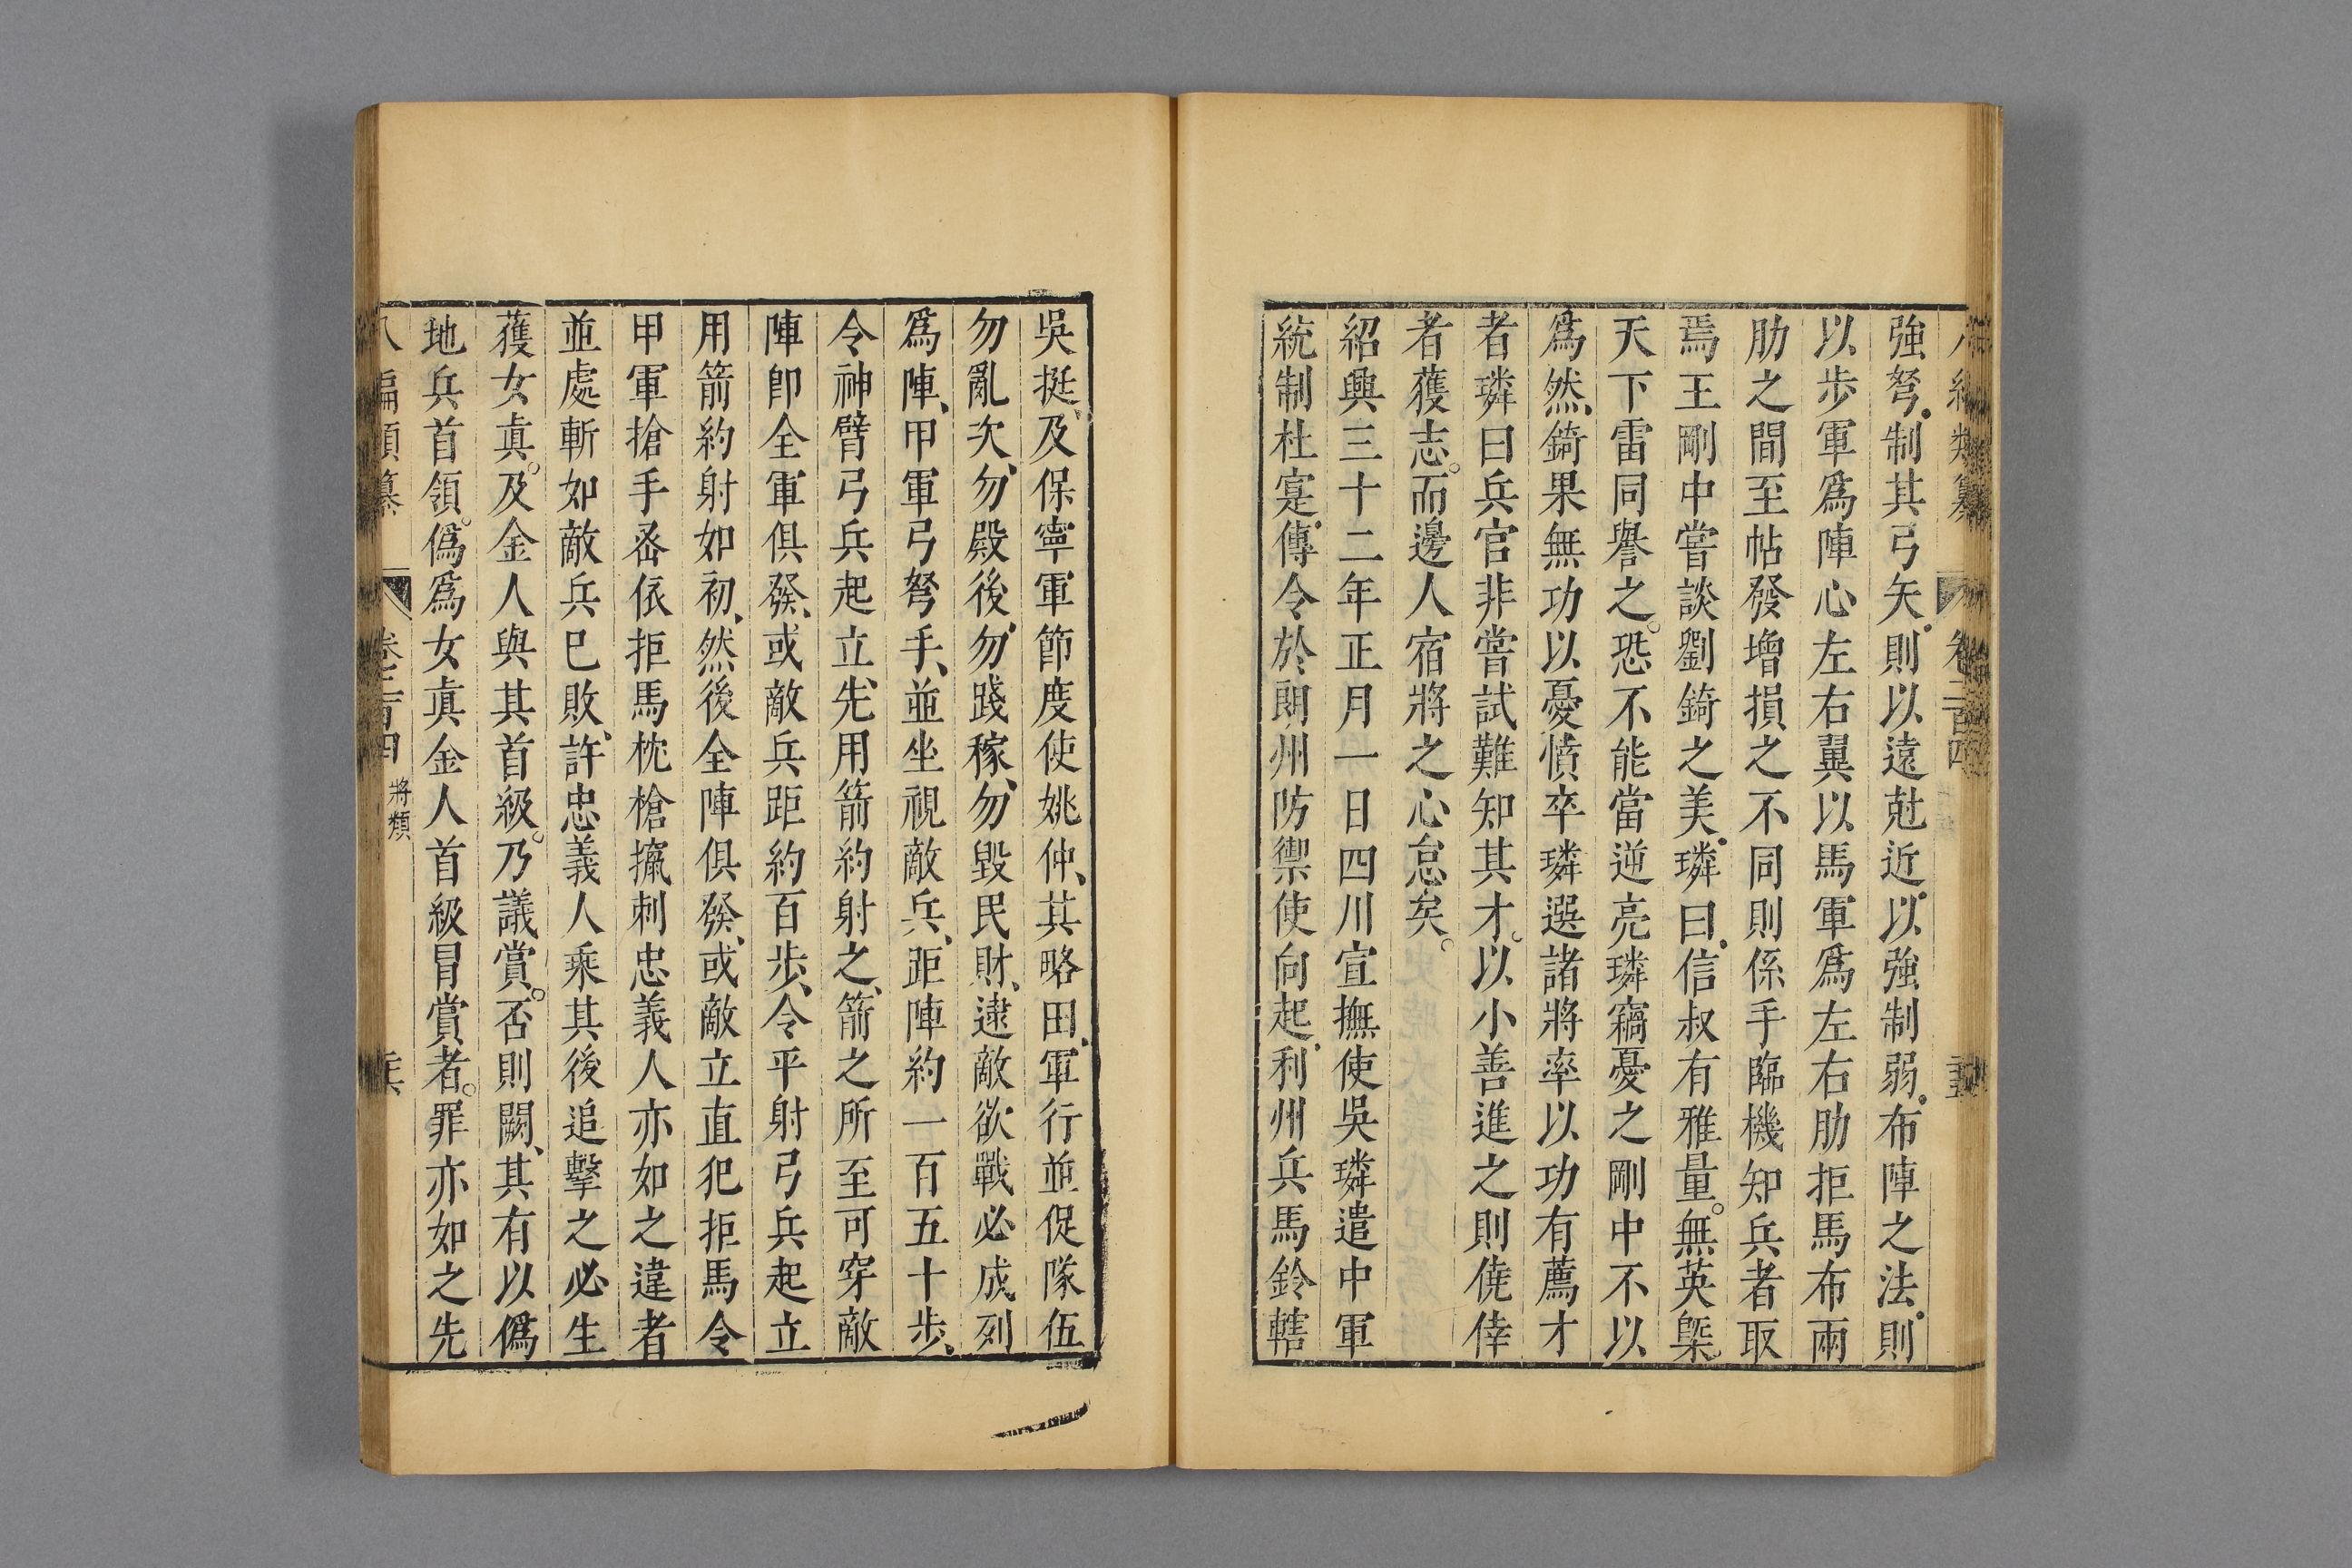 強弩制其弓矢則以遠尅近以強制弱布陣之法則
以步軍爲陣心左右翼以馬軍爲左右肋拒馬布兩
肋之間至帖發增損之不同則係手臨機知兵者取
焉王剛中嘗談劉錡之美璘曰信叔有雅量無英槩
天下雷同譽之恐不能當逆亮璘竊憂之剛中不以
爲然錡果無功以憂憤卒璘選諸將率以功有薦才
者璘曰兵官非嘗試難知其才以小善進之則僥倖
者獲志而邊人宿將之心怠矣
紹興三十二年正月一日四川宣撫使吳璘遣中軍
統制杜寔傳令於朗州防禦使向起利州兵馬鈐轄
吳挺及保寧軍節度使姚仲其略田軍行並促隊伍
勿亂次勿殿後勿踐稼勿毀民財逮敵欲戰必成列
爲陣甲軍弓弩手並坐視敵兵距陣約一百五十步
令神臂弓兵起立先用箭約射之箭之所至可穿敵
陣卽全軍俱發或敵兵距約百步令平射弓兵起立
用箭約射如初然後全陣俱發或敵立直犯拒馬令
甲軍搶手丞依拒馬枕槍攛刺忠義人亦如之違者
並處斬如敵兵巳敗許忠義人乘其後追擊之必生
獲女眞及金人與其首級乃議賞否則闕其有以僞
地兵首領僞爲女眞金人首級冒賞者罪亦如之先
八編類纂 卷二百四 將類